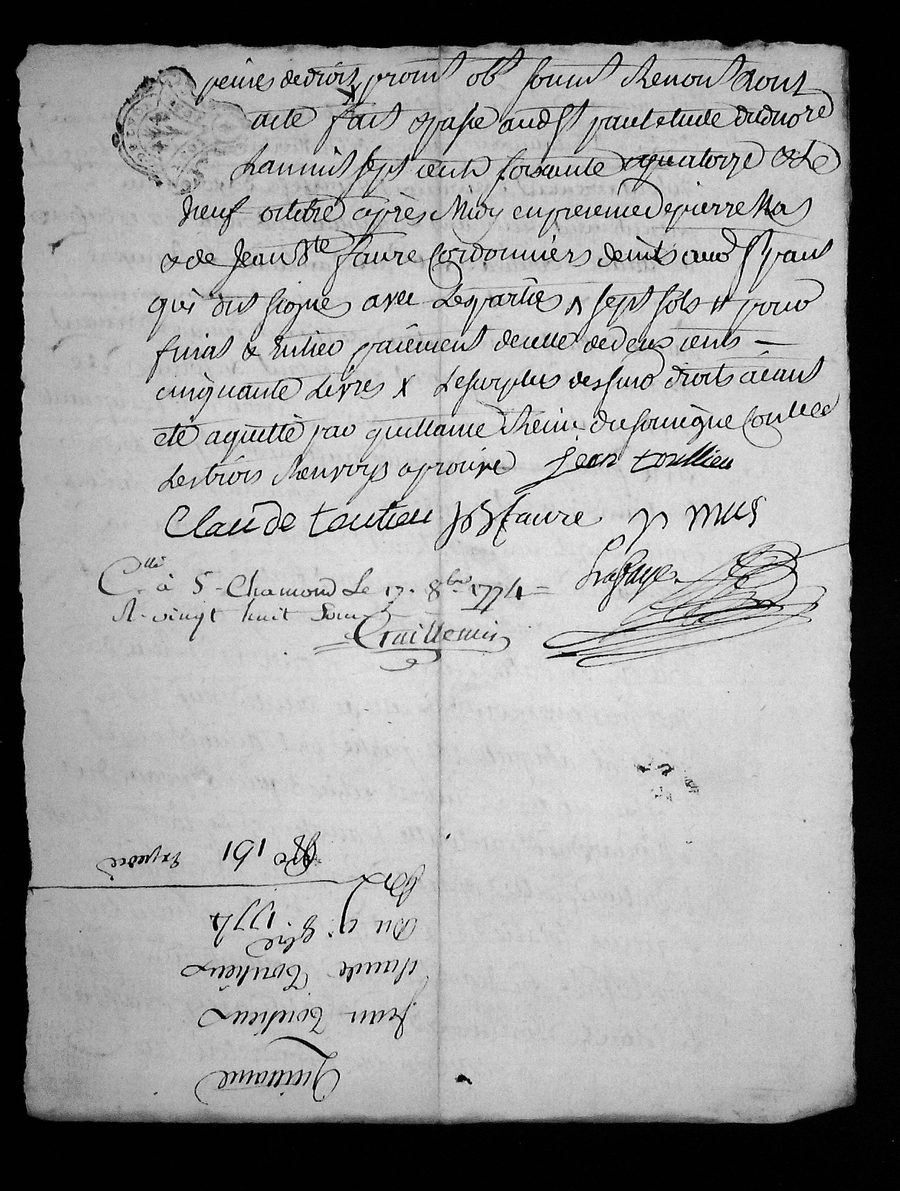 peines de droit x promt obt soumt Renont dont
acte fait & passé aud St paul etude du dnore
L'an mil sept cents soixante & quatorze & le
neuf octobre après Midy en presence de pierre Mas
& de Jean Bte faure Cordonniers demts aud St paul
qui ont signe avec Les parties x sept sols # pour
final & Entier paiement de celle de deux cents —
cinquante Livres x Le surplus desd droits aiant
été aquitté par guillaume
Les trois Renvoys aprouvé jean toullieu
Claude toulieu JB faure p mas
Cllé à St Chamond Le 17. 8bre 1774 =
R. vingt huit sous
Lafaye
Guillemin
Quittance
Jean Toulieux
Claude Toulieux
Du 9. 8bre 1774
Grx
Rp c 161 Expedié